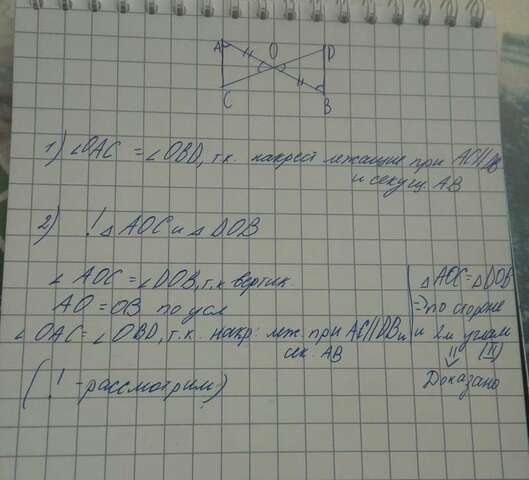 A O D
C B
1) ∠OAC = ∠OBD, т.к. накрест лежащие при AC||DB
и секущ. AB
2) ! △ AOC и △ DOB
∠ AOC = ∠DOB, т.к вертик.
AO = OB по усл
∠ OAC = ∠ OBD, т.к. накр. леж. при AC||DB и
сек. AB
△AOC = △DOB
=> по стороне
и 2м углам
(II)
Доказано
( ! - рассмотрим)